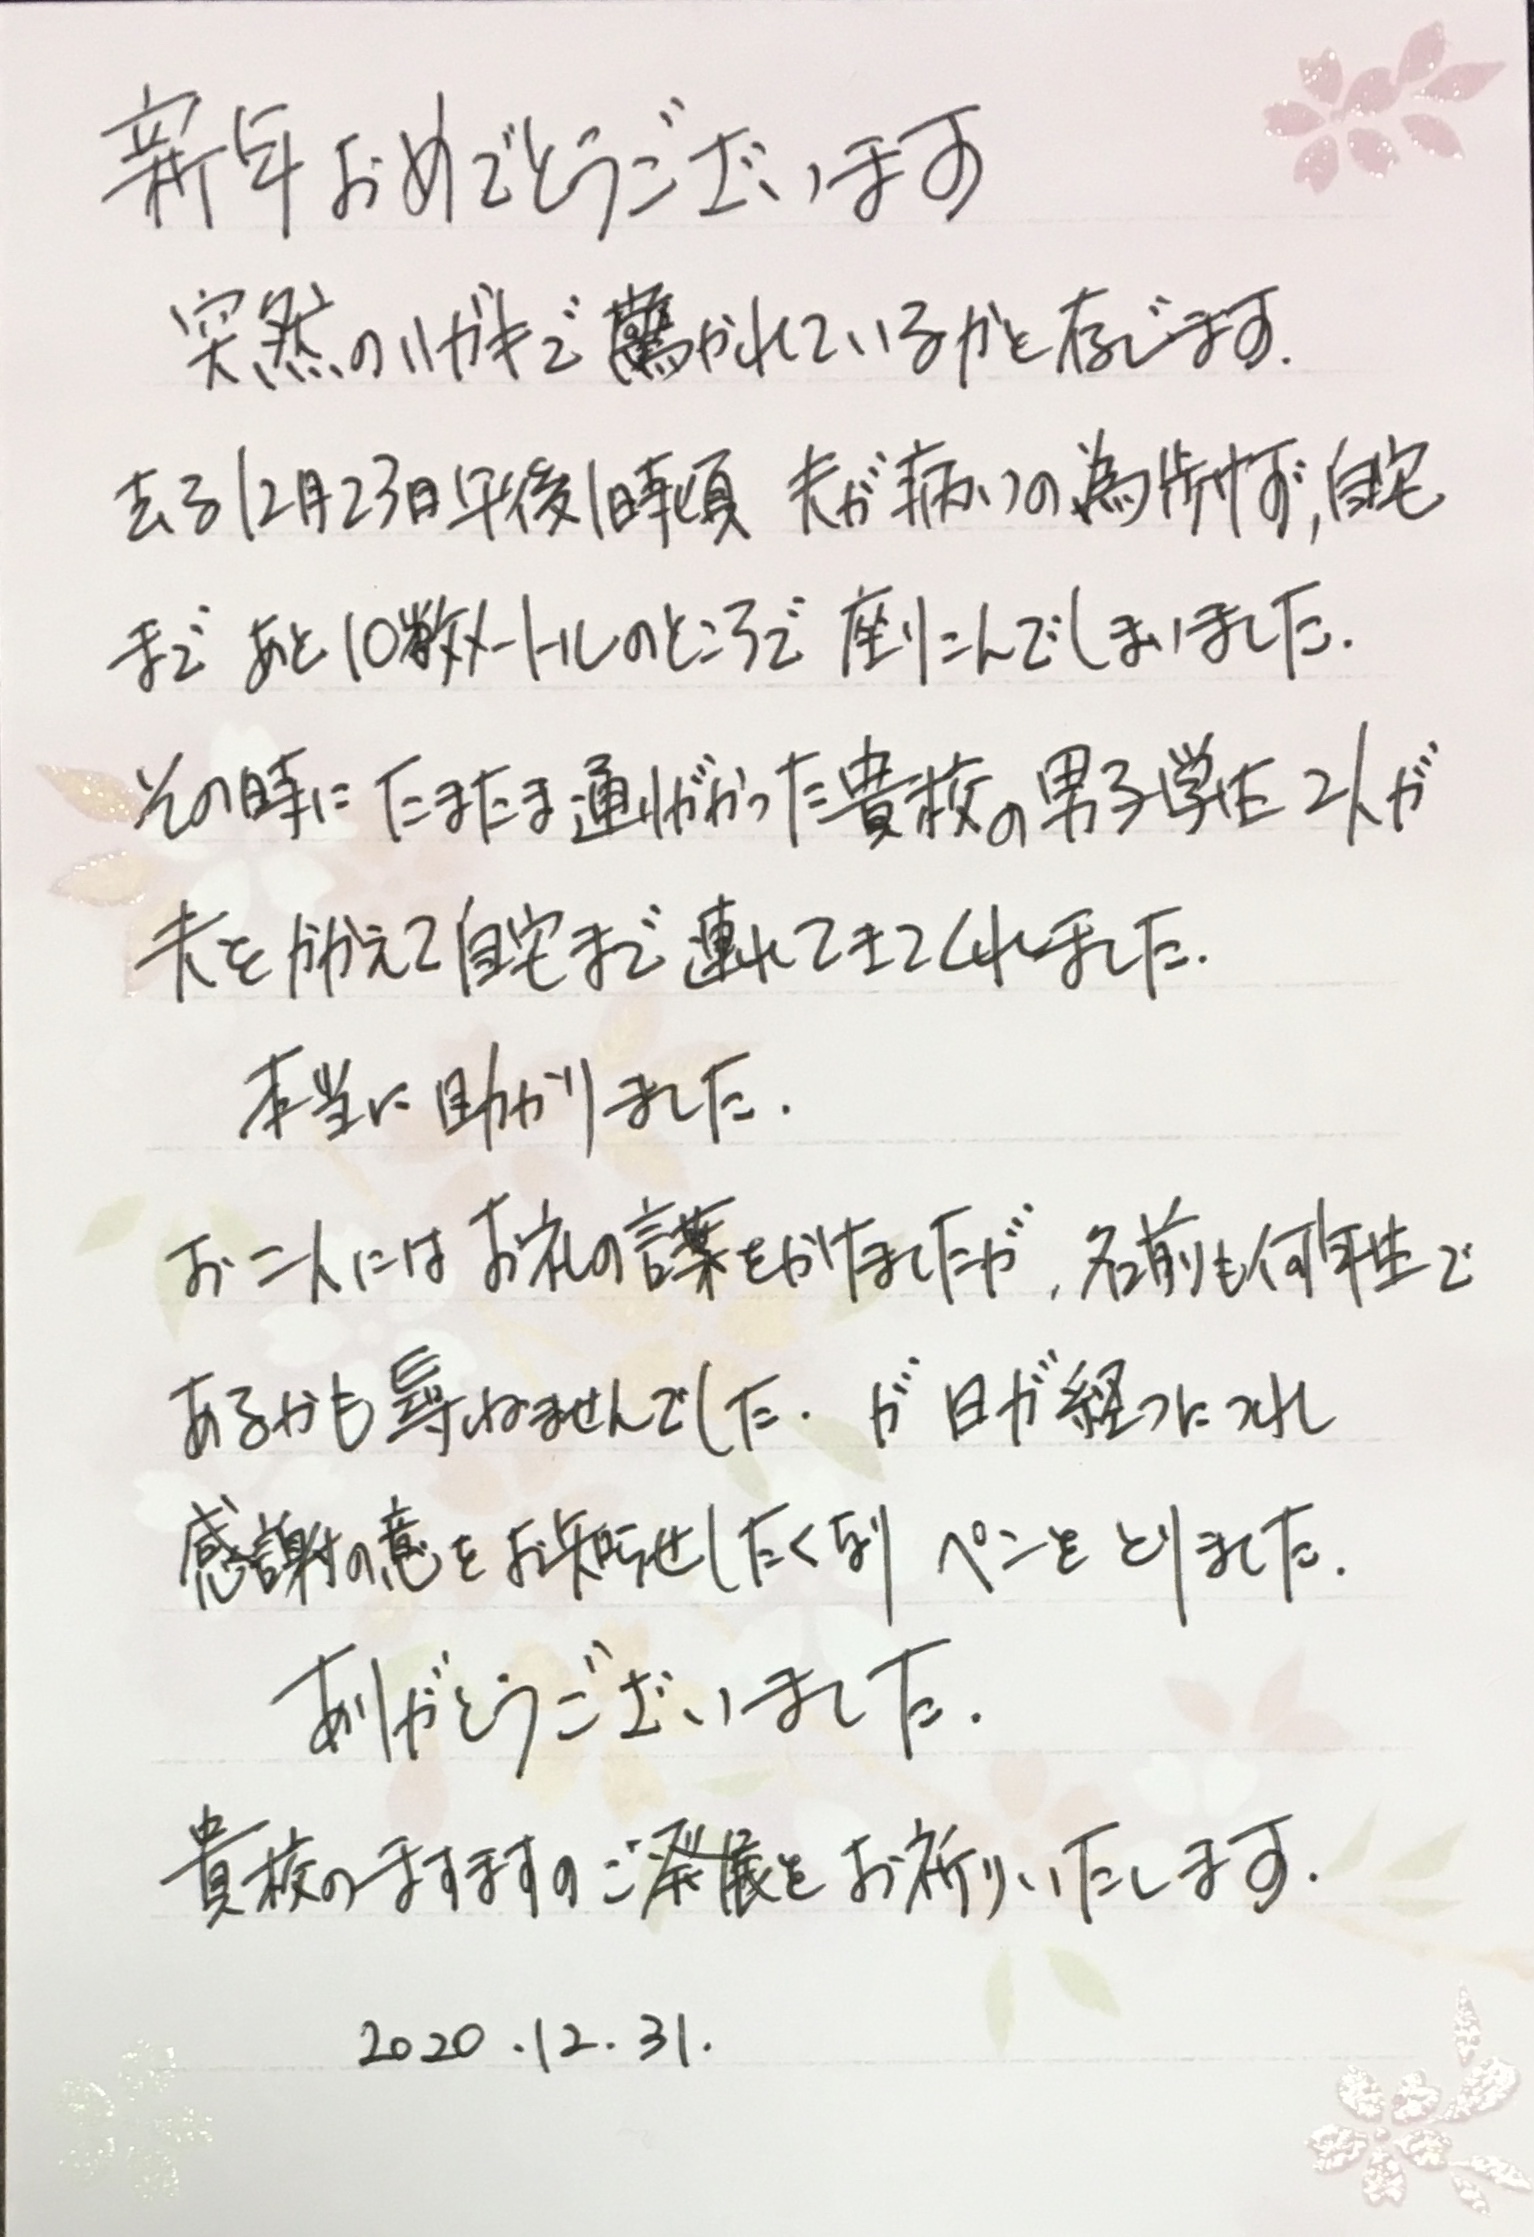 新年おめでとうございます
突然のハガキで驚かれているかと存じます.
去る12月23日午後1時頃 夫が病いの為歩けず,自宅
まで あと10数メートルのところで 座りこんでしまいました.
その時に たまたま通りがかった貴校の男子学生2人が
夫をかかえて自宅まで連れてきてくれました.
本当に助かりました.
お二人にはお礼の言葉をかけましたが,名前も何年生で
あるかも尋ねませんでした.が 日が経つにつれ
感謝の意をお知らせしたくなり ペンをとりました.
ありがとうございました.
貴校のますますのご発展をお祈りいたします.
2020.12.31.